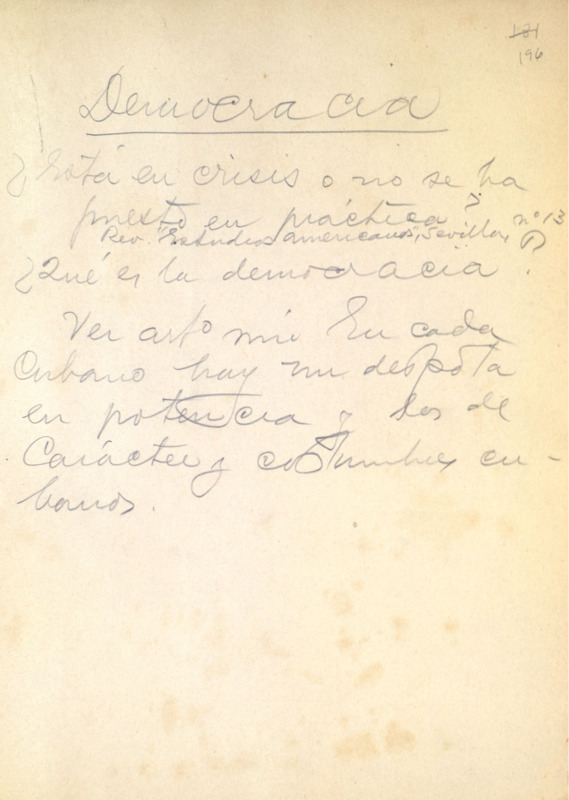 121
196
Democracia
¿Está en crisis o no se ha
puesto en práctica?
Rev. "Estudios americanos", Sevilla, nº 13
¿Qué es la democracia?
Ver artº mío En cada
Cubano hay un déspota
en potencia y los de
Carácter y costumbres cu-
banos.